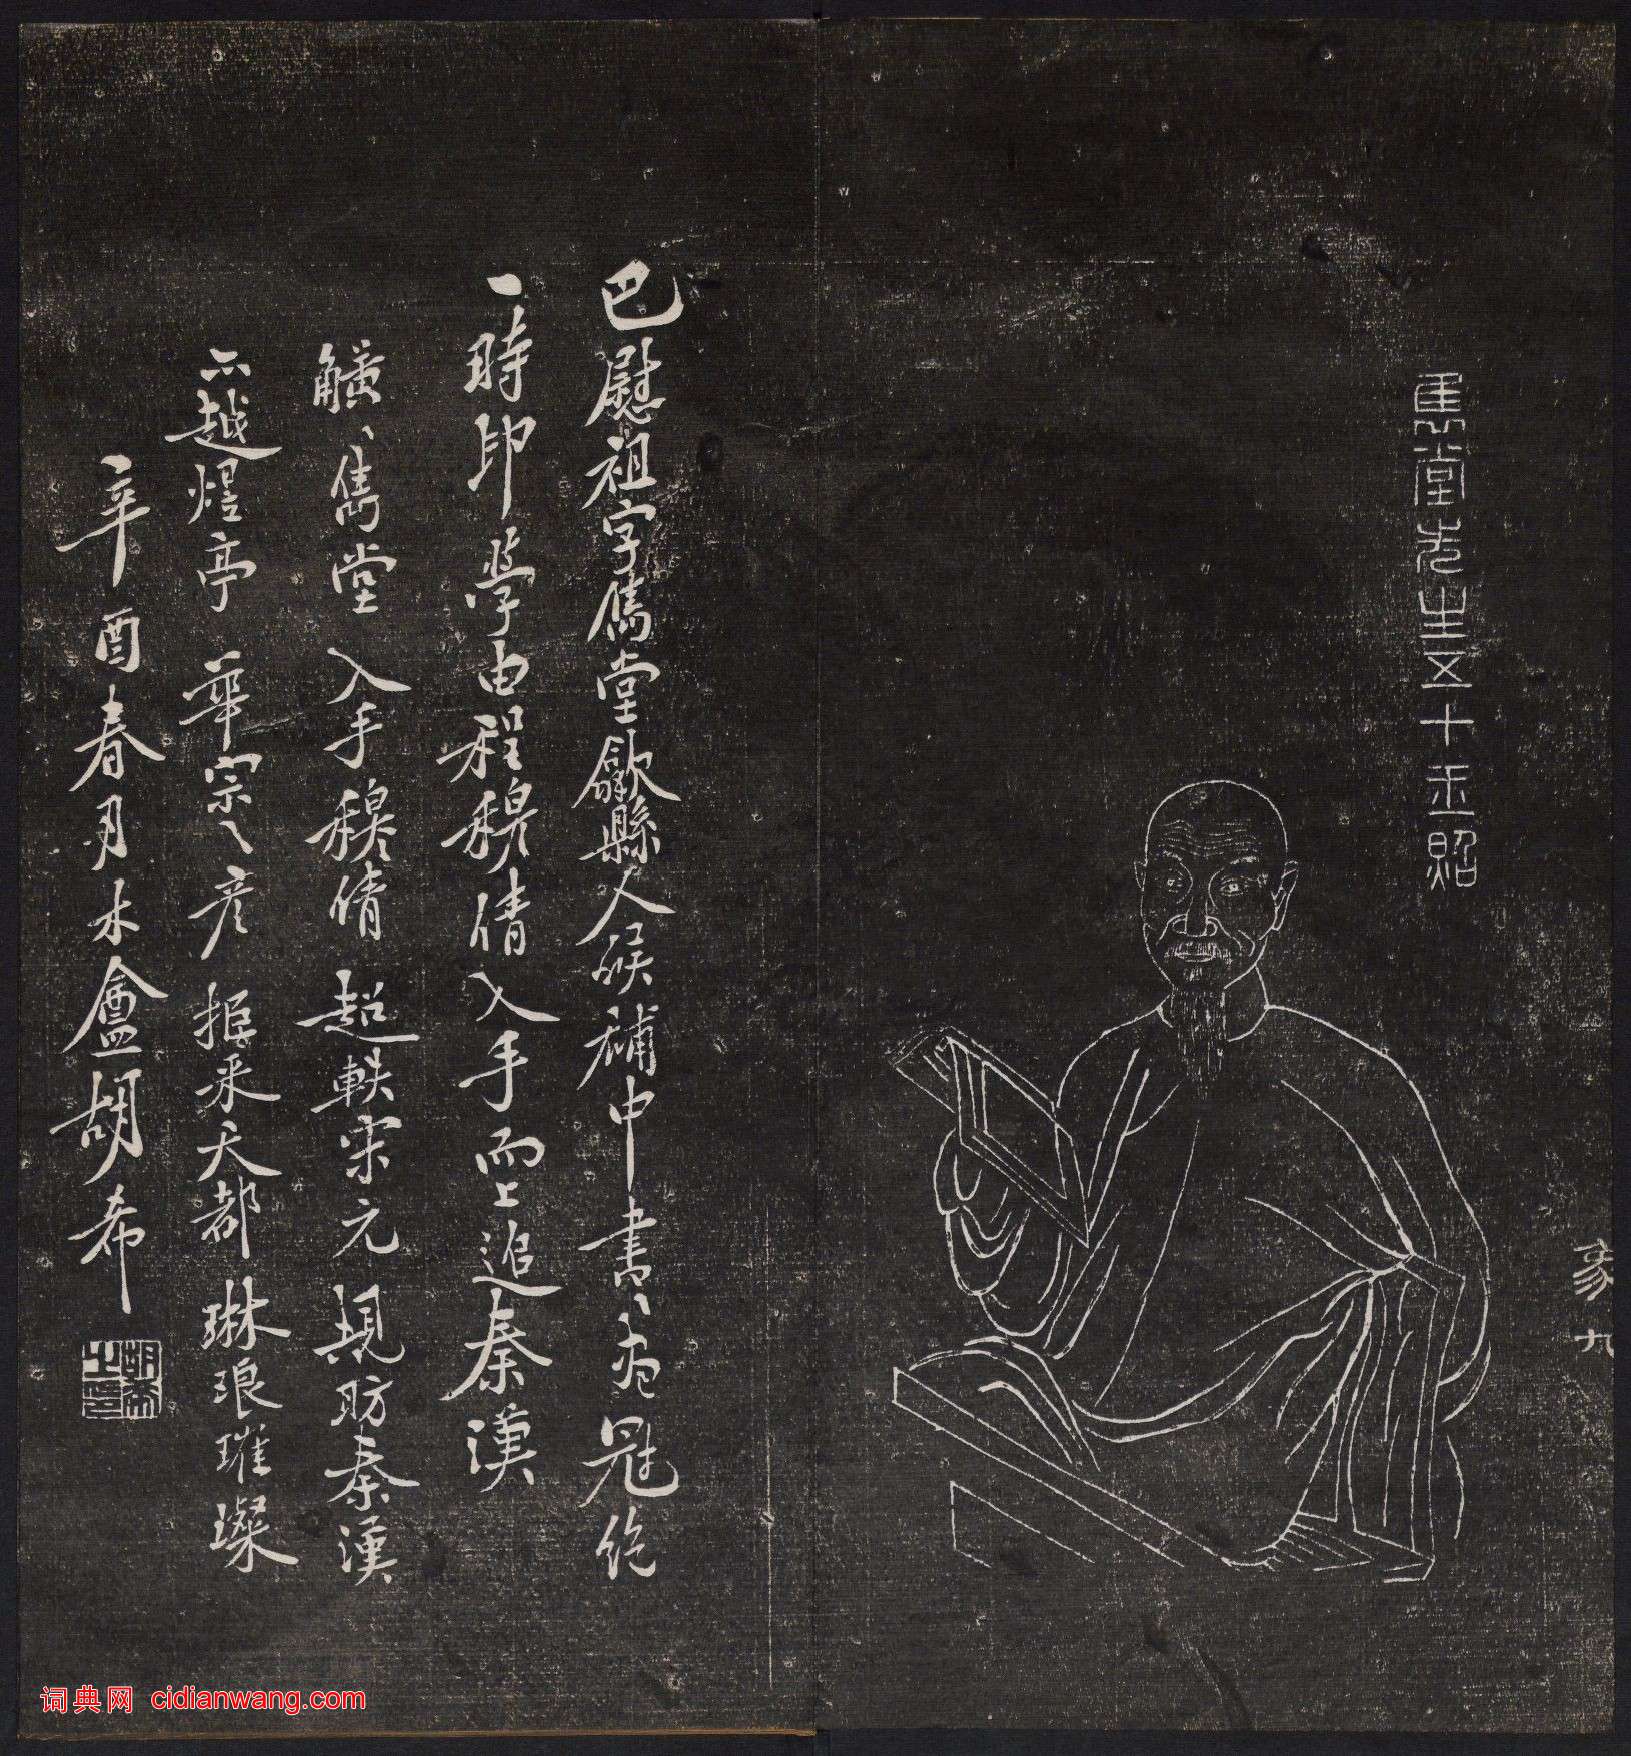 雋堂先生五十玉照
亥九
巴慰祖字雋堂歙縣人候補中書書畫冠絕
一時印學由程穆倩入手而上追秦漢
觥觥雋堂 入手穆倩 超軼宋元 規昉秦漢
不越煌亭 華宗之彥 摭采天都 琳琅璀璨
辛酉春月木盦胡希
胡希之印
词典网 cidianwang.com